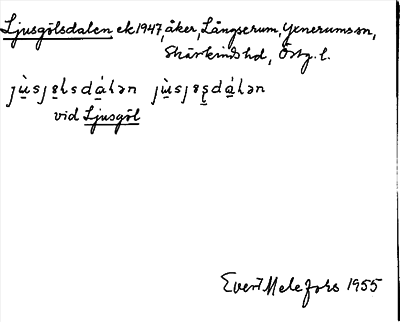 Ljusgölsdalen ek 1947, åker, Långserum, Yxnerums sn,
Skärkinds hd, Östg. l.
jùsjɵlsdálən jùsjɵsdálən
vid Ljusgöl
Evert Melefors 1955